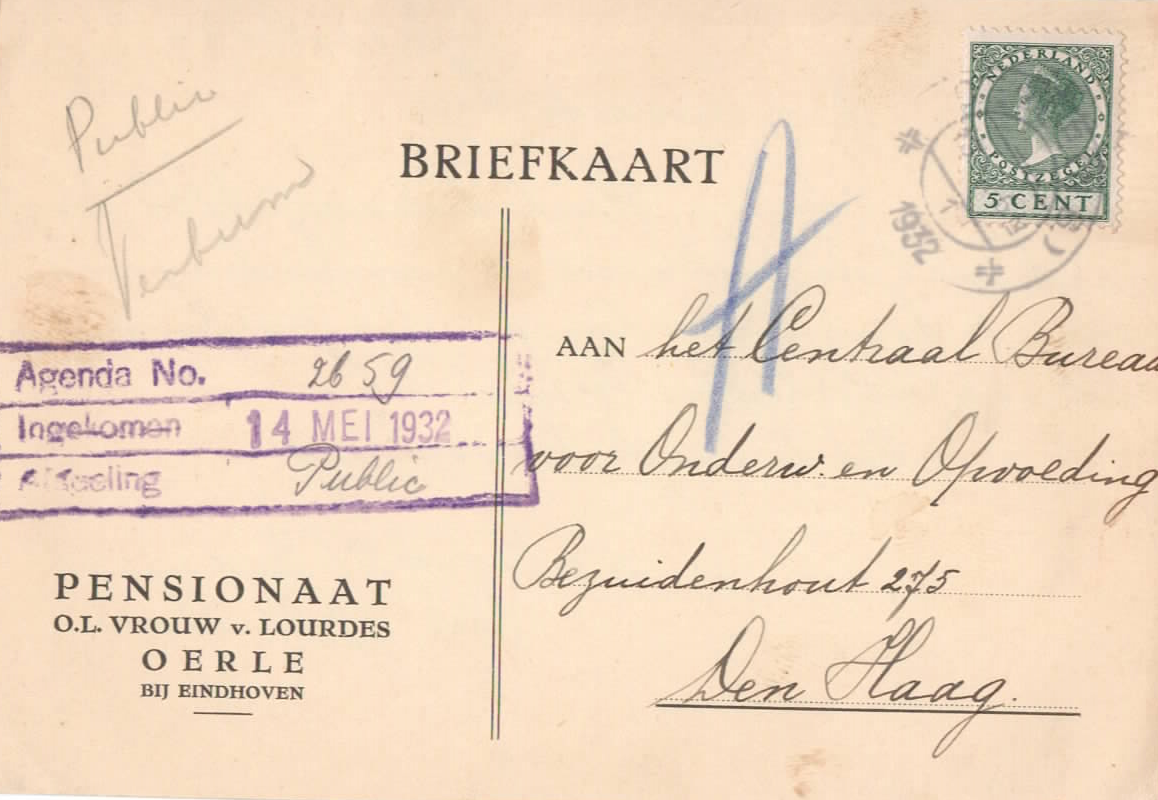 Public
BRIEFKAART
NEDERLAND
POSTZEGEL
5 CENT
1932
AAN het Centraal Bureau
voor Onderw. en Opvoeding
Bezuidenhout 275
Den Haag.
A
Agenda No. 2659
Ingekomen 14 MEI 1932
Afdeeling Public
PENSIONAAT
O.L. VROUW v. LOURDES
OERLE
BIJ EINDHOVEN